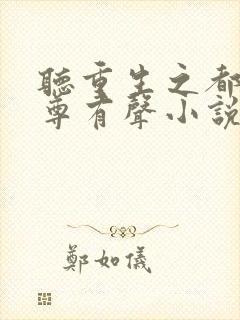 聽重生之都
尊有聲小說
鄭如儀